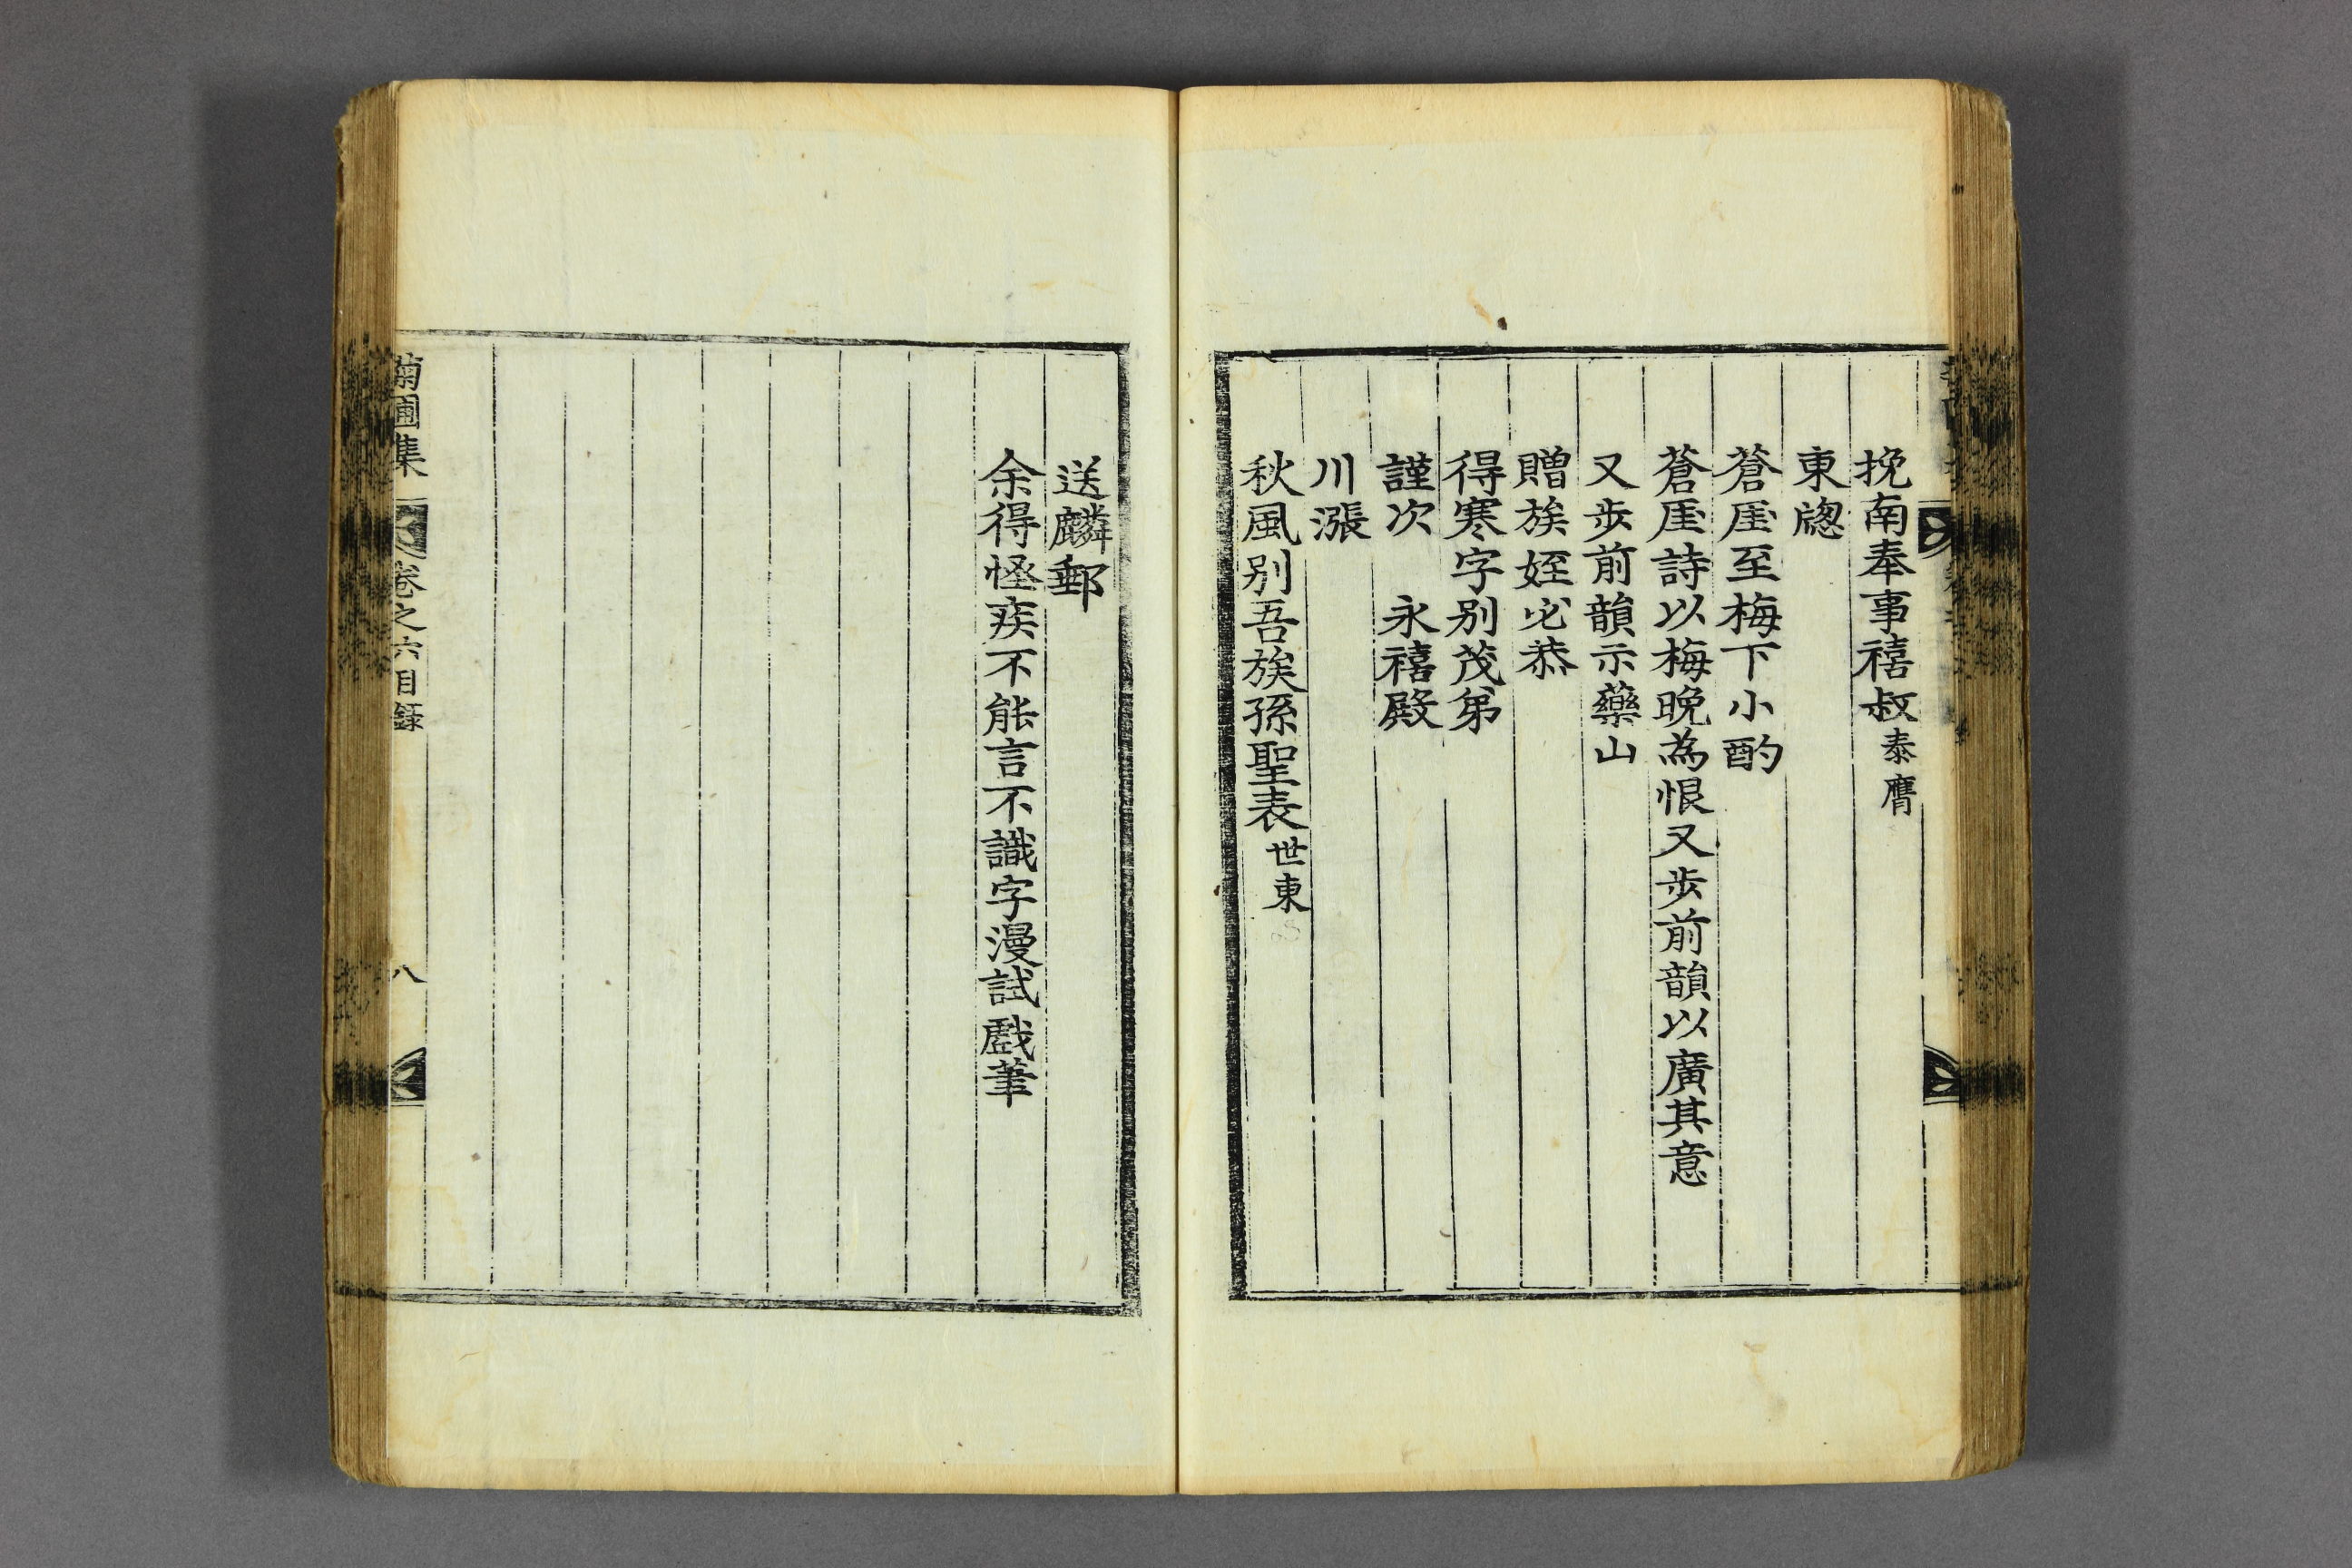 挽南奉事禧叔泰膺
東牕
蒼厓至梅下小酌
蒼厓詩以梅晩為恨又步前韻以廣其意
又步前韻示藥山
贈族姪必恭
得寒字別茂弟
謹次　永禧殿
川漲
秋風別吾族孫聖表世東
送麟郵
余得怪疾不能言不識字漫試戲筆
菊圃集　卷之六目録　八